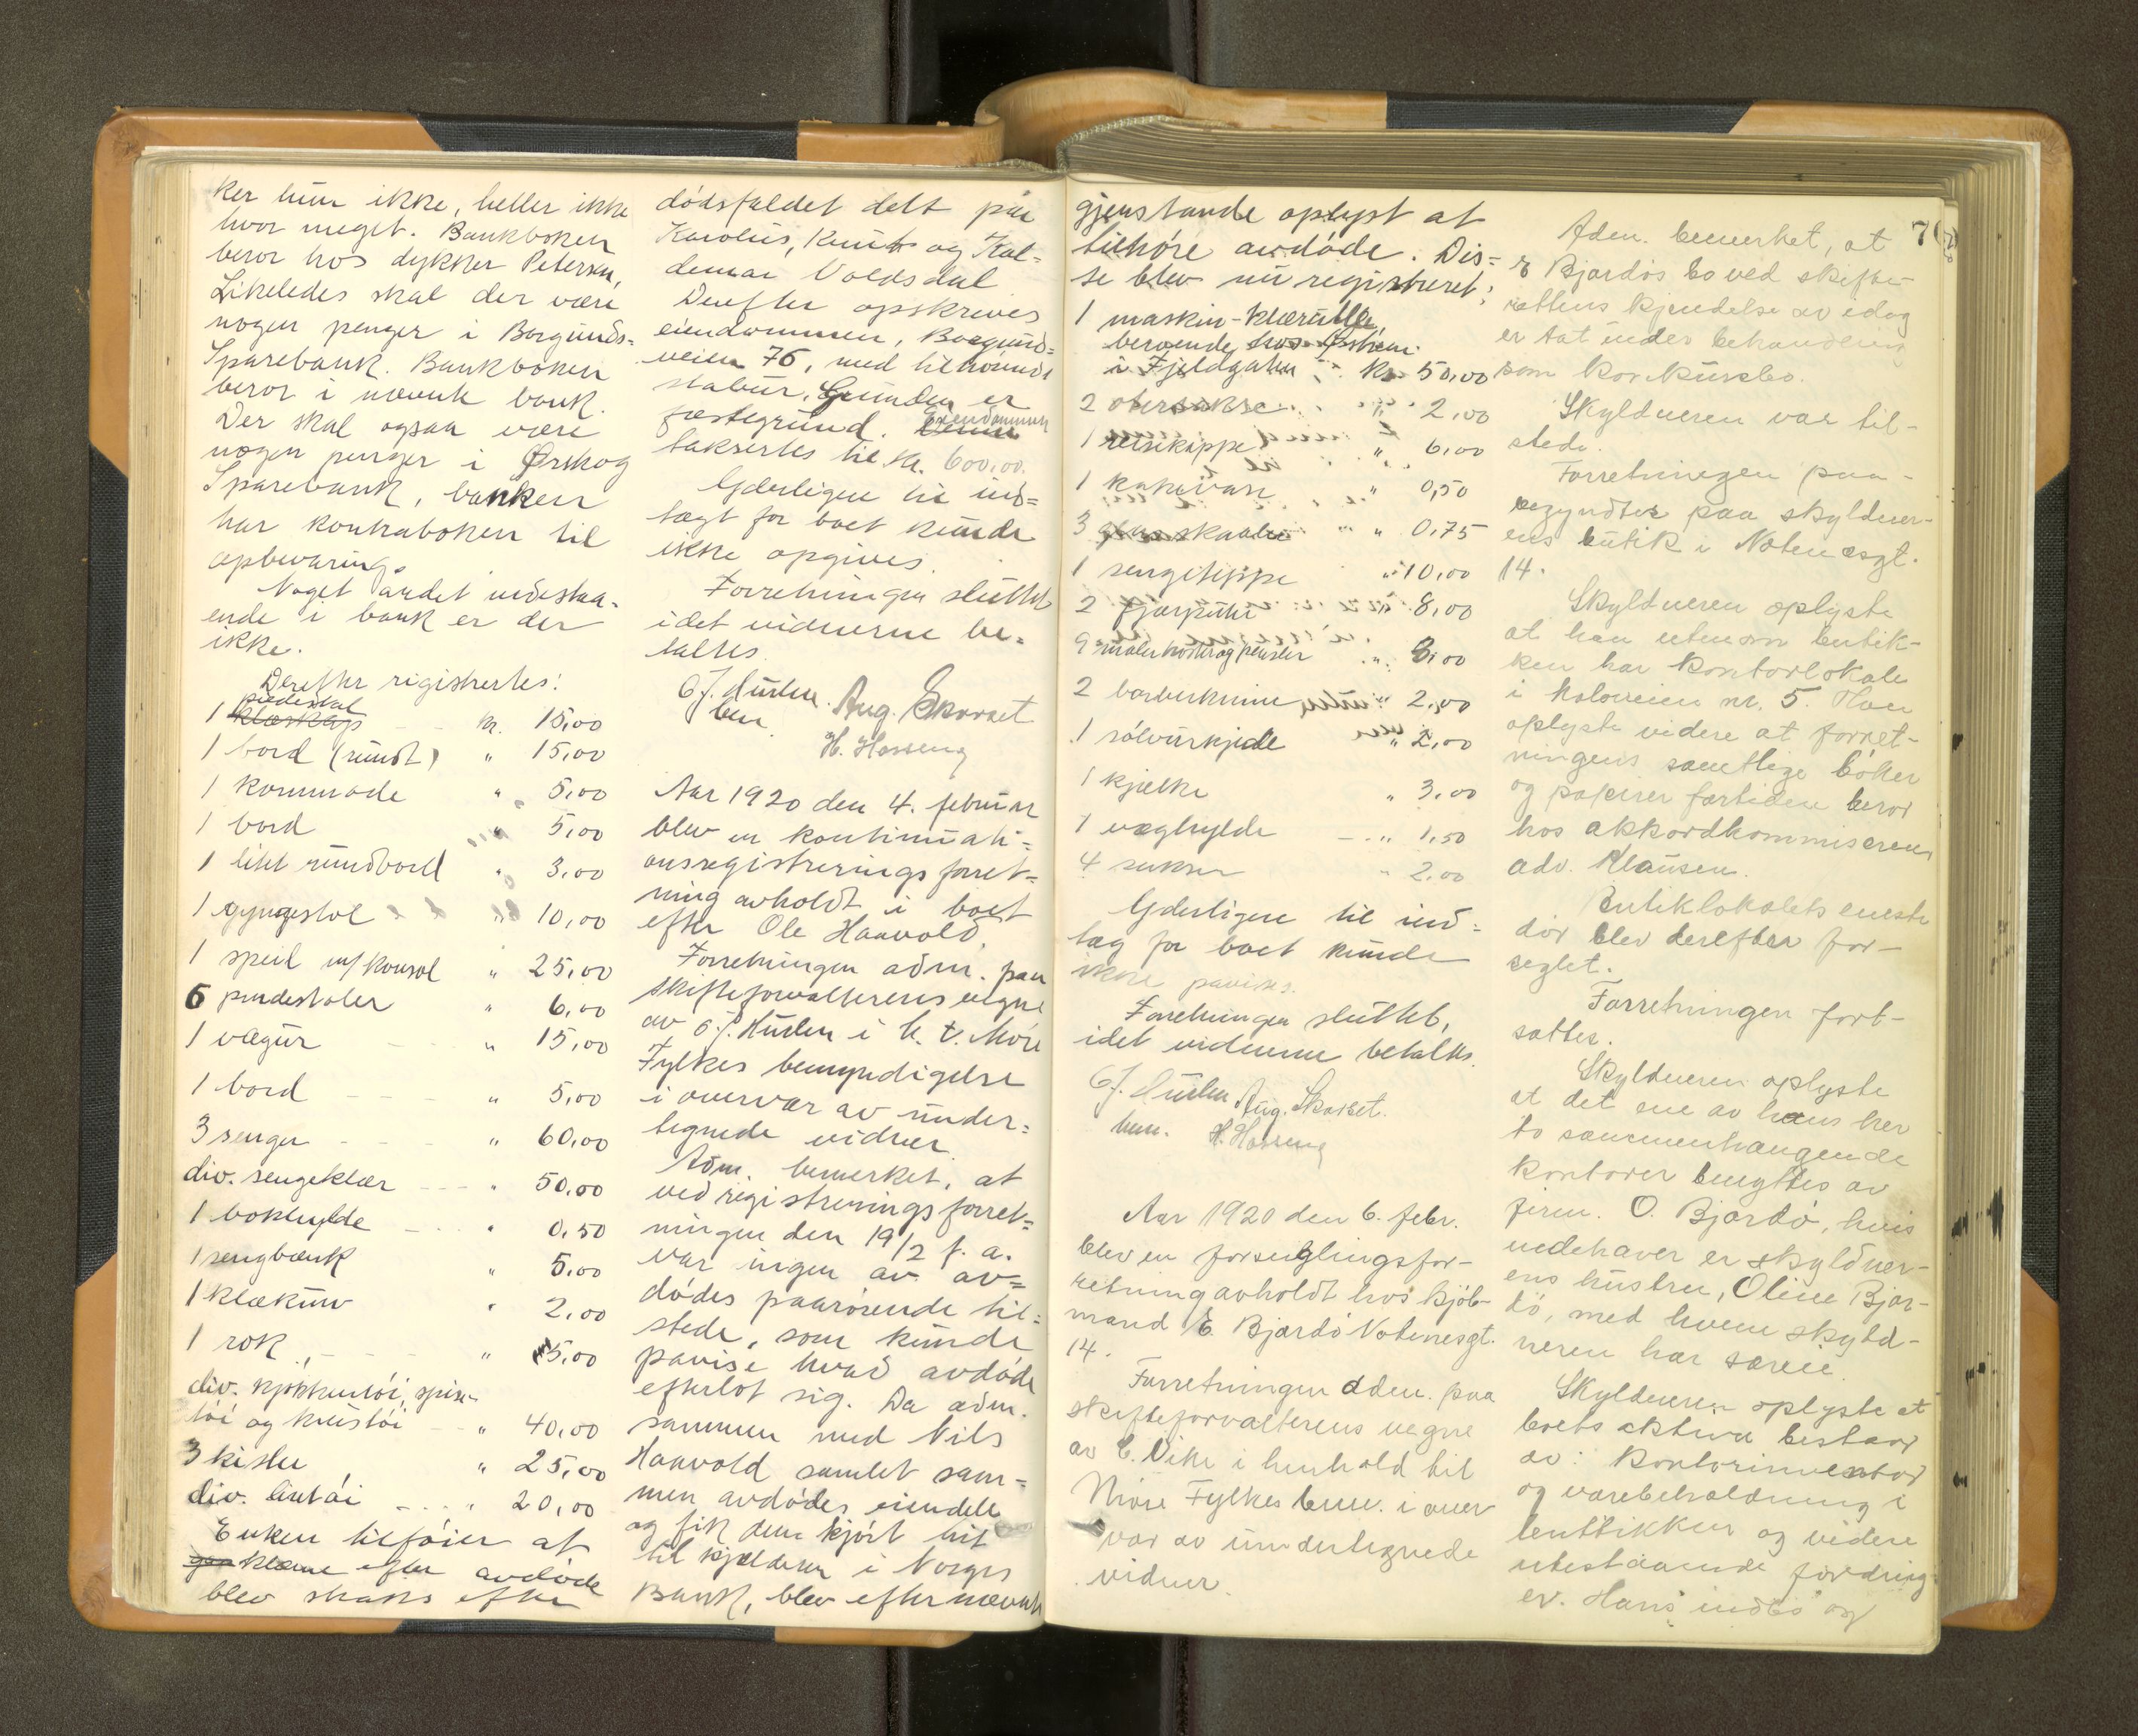 ker hun ikke, heller ikke
hvor meget. Bankboken
beror hos dykker Petersen,
Likeledes skal der være
nogen penger i Borgunds=
Sparebank. Bankboken
beror i nævnte bank.
Der skal ogsaa være
nogen penger i Ørskog
Sparebank, banken
har kontraboken til
opbevaring.
Noget andet indestaa-
ende i bank er der
ikke.
Derefter registrertes:
piedestal
1 klæskap kr. 15,00
1 bord (rundt) " 15,00
1 kommode " 5,00
1 bord " 5,00
1 litet rundbord " 3,00
1 gyngestol " 10,00
1 speil m/konsol " 25,00
6 pindestoler " 6,00
1 vægur " 15,00
1 bord " 5,00
3 senger " 60,00
div. sengeklær " 50,00
1 bokhylde " 0,50
1 sengbænk " 5,00
1 klækurv " 2,00
1 rok " 5,00
div. kjøkkentøi, spise-
tøi og knustøi " 40,00
3 kister " 25,00
div. lintøi " 20,00
Enken tilføier at
klærne efter avdøde
blev straks efter
dødsfaldet delt paa
Karolus, Knut og Kal=
demar Voldsdal
Derefter opskreves
eiendommen, Borgund=
veien 76, med tilhørende
stabur. Grunden er
festegrund. Eiendommen
taksertes til kr. 600,00.
Yderligere til ind=
tægt for boet kunde
ikke opgives.
Forretningen sluttet
idet vidnerne be=
taltes.
Aug. Skorset
H. Hasseng
Aar 1920 den 4. februar
blev en kontinuati=
onsregistreringsforret=
ning avholdt i boet
efter Ole Haavold.
Forretningen adm. paa
skifteforvalterens vegne
av i h. t. Møre
Fylkes bemyndigelse
i overvær av under=
tegnede vidner.
Adm. bemerket, at
ved registreringsforret=
ningen den 19/2 f. a.
var ingen av av=
dødes paarørende til=
stede, som kunde
pavise hvad avdøde
efterlot sig. Da adm.
sammen med Nils
Haavold samlet sam=
men avdødes eiendele
og fik dem kjørt hit
til kjelderen i Norges
Bank, blev efternævnte
gjenstande oplyst at
tilhøre avdøde. Dis=
se blev nu registreret:
1 maskin-klærulle,
beroende hos
i Fjeldgaten kr. 50,00
2 " 2,00
1 reisekappe " 6,00
1 kakevase " 0,50
3 glasskaaler " 0,75
1 sengeteppe " 10,00
2 fjærputer " 8,00
9 malerkoster og pensler " 3,00
2 barberknive " 2,00
1 sølvurkjede " 2,00
1 kjelke " 3,00
1 væghylde " 1,50
4 sakser " 2,00
Yderligere til ind=
tæg for boet kunde
ikke pavises.
Forretningen sluttet,
idet vidnerne betaltes.
Aug. Skorset.
H. Hasseng
Aar 1920 den 6. febr.
blev en forseglingsfor-
retning avholdt hos kjøb-
mand E. Bjørdø Notenesgt.
14.
Forretningen adm. paa
skifteforvalterens vegne
av E. Vike i henhold til
Møre Fylkes bem. i over
vær av undertegnede
vidner.
Adm. bemerket, at
E Bjørdøs bo ved skifte-
rettens kjendelse av idag
er tat under behandling
som konkursbo.
Skyldneren var til-
stede.
Forretningen paa-
begyndtes paa skyldner-
ens butik i Notenesgt.
14.
Skyldneren oplyste
at han utenom butik-
ken har kontorlokale
i nr. 5. Han
oplyste videre at forret-
ningens samtlige bøker
og papirer fortiden beror
hos akkordkommiseren
adv. Klausen.
Butiklokalets eneste
dør blev derefter for-
seglet.
Forretningen fort-
sattes.
Skyldneren oplyste
at det ene av hans her
to sammenhængende
kontorer benyttes av
firm. O. Bjørdø, hvis
indehaver er skyldner-
ens hustru, Oline Bjør-
dø, med hvem skyld-
neren har særeie.
Skyldneren oplyste at
boets aktiva bestaar
av: kontorinventar
og varebeholdning i
buttikken og videre
utestaaende fordring
er. Hans indbo og